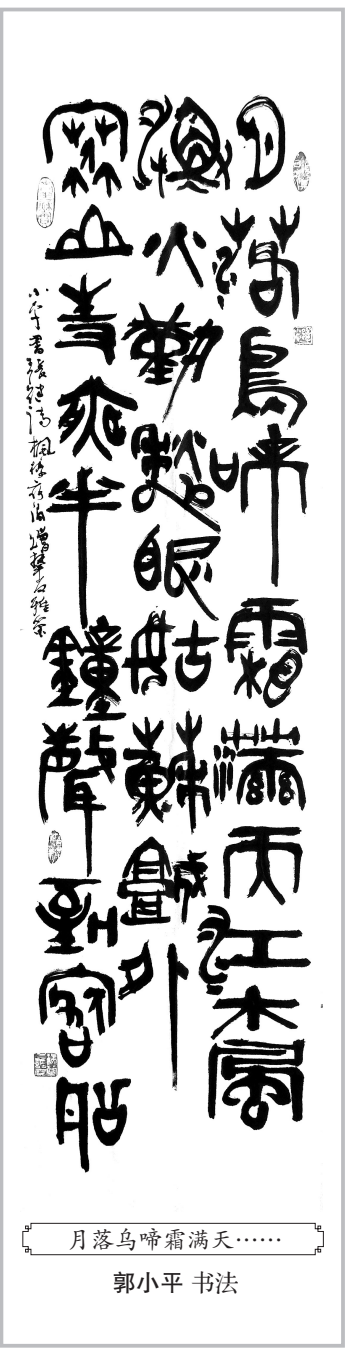 月落烏啼霜滿天江楓
漁火對愁眠姑蘇城外
寒山寺夜半鐘聲到客船
小平書張繼詩楓橋夜泊
月落乌啼霜满天……
郭小平 书法